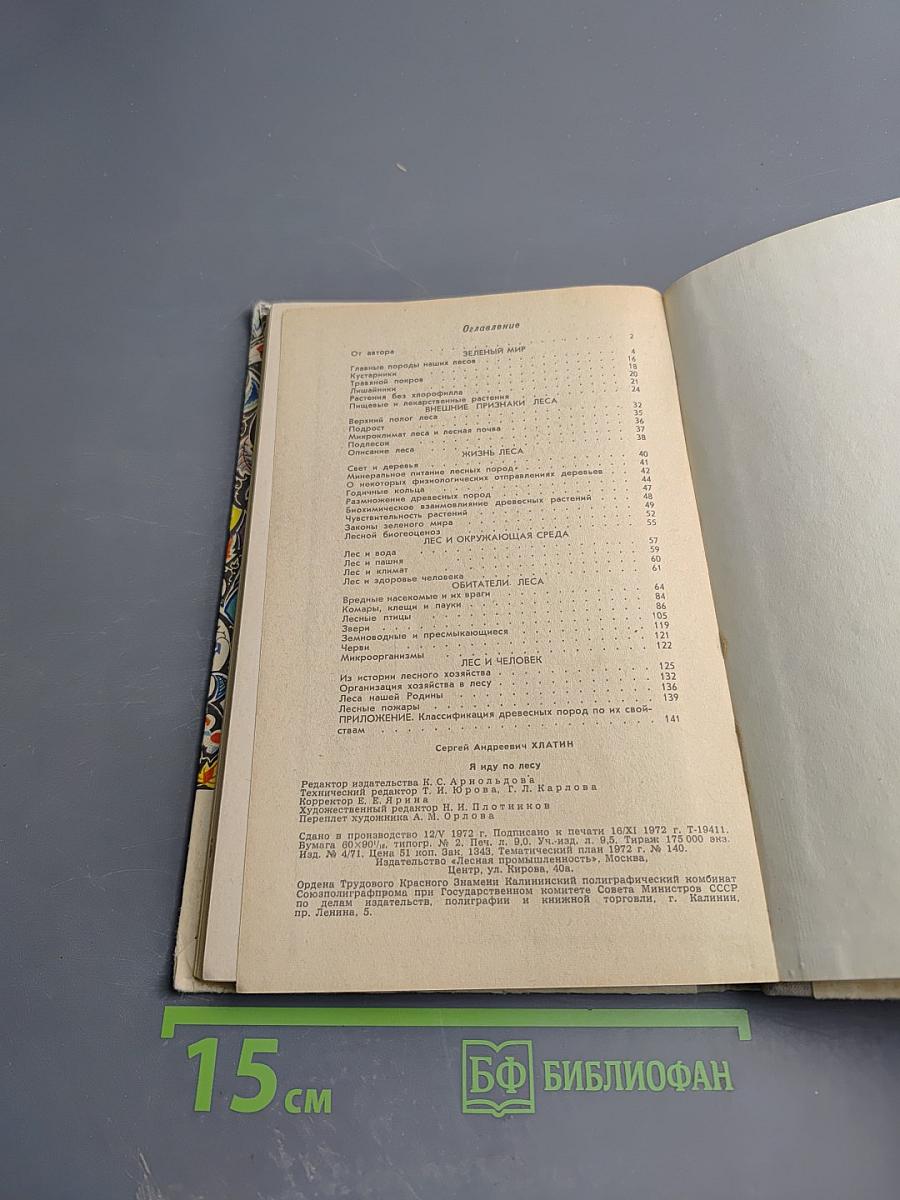 Оглавление
От автора . . . . . . . . . . . . . . . . 2
ЗЕЛЕНЫЙ МИР
Главные породы наших лесов . . . . . . . . . . 4
Кустарники . . . . . . . . . . . . . . . . 16
Травяной покров . . . . . . . . . . . . . . 18
Лишайники . . . . . . . . . . . . . . . . 20
Растения без хлорофилла . . . . . . . . . . . 21
Пищевые и лекарственные растения . . . . . . . 24
ВНЕШНИЕ ПРИЗНАКИ ЛЕСА
Верхний полог леса . . . . . . . . . . . . . 32
Подрост . . . . . . . . . . . . . . . . . 35
Микроклимат леса и лесная почва . . . . . . . . 36
Подлесок . . . . . . . . . . . . . . . . . 37
Описание леса . . . . . . . . . . . . . . . 38
ЖИЗНЬ ЛЕСА
Свет и деревья . . . . . . . . . . . . . . . 40
Минеральное питание лесных пород . . . . . . . 41
О некоторых физиологических отправлениях деревьев . . 42
Годичные кольца . . . . . . . . . . . . . . 44
Размножение древесных пород . . . . . . . . . 47
Биохимическое взаимовлияние древесных растений . . . 48
Чувствительность растений . . . . . . . . . . 49
Законы зеленого мира . . . . . . . . . . . . 52
Лесной биогеоценоз . . . . . . . . . . . . . 55
ЛЕС И ОКРУЖАЮЩАЯ СРЕДА
Лес и вода . . . . . . . . . . . . . . . . 57
Лес и пашня . . . . . . . . . . . . . . . . 59
Лес и климат . . . . . . . . . . . . . . . 60
Лес и здоровье человека . . . . . . . . . . . 61
ОБИТАТЕЛИ ЛЕСА
Вредные насекомые и их враги . . . . . . . . . 64
Комары, клещи и пауки . . . . . . . . . . . . 84
Лесные птицы . . . . . . . . . . . . . . . 86
Звери . . . . . . . . . . . . . . . . . . 105
Земноводные и пресмыкающиеся . . . . . . . . . 119
Черви . . . . . . . . . . . . . . . . . . 121
Микроорганизмы . . . . . . . . . . . . . . . 122
ЛЕС И ЧЕЛОВЕК
Из истории лесного хозяйства . . . . . . . . . 125
Организация хозяйства в лесу . . . . . . . . . 132
Леса нашей Родины . . . . . . . . . . . . . 136
Лесные пожары . . . . . . . . . . . . . . . 139
ПРИЛОЖЕНИЕ. Классификация древесных пород по их свой-
ствам . . . . . . . . . . . . . . . . . . 141
Сергей Андреевич ХЛАТИН
Я иду по лесу
Редактор издательства К. С. Арнольдова
Технический редактор Т. И. Юрова, Г. Л. Карлова
Корректор Е. Е. Ярина
Художественный редактор Н. И. Плотников
Переплет художника А. М. Орлова
Сдано в производство 12/V 1972 г. Подписано к печати 16/XI 1972 г. Т-19411.
Бумага 60×90¹/₁₆, типогр. № 2. Печ. л. 9,0. Уч.-изд. л. 9,5. Тираж 175 000 экз.
Изд. № 4/71. Цена 51 коп. Зак. 1343. Тематический план 1972 г. № 140.
Издательство «Лесная промышленность», Москва,
Центр, ул. Кирова, 40а.
Ордена Трудового Красного Знамени Калининский полиграфический комбинат
Союзполиграфпрома при Государственном комитете Совета Министров СССР
по делам издательств, полиграфии и книжной торговли, г. Калинин,
пр. Ленина, 5.
15 см
БФ БИБЛИОФАН